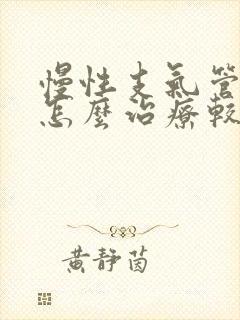 慢性支氣管
怎麼治療較
黃靜茵